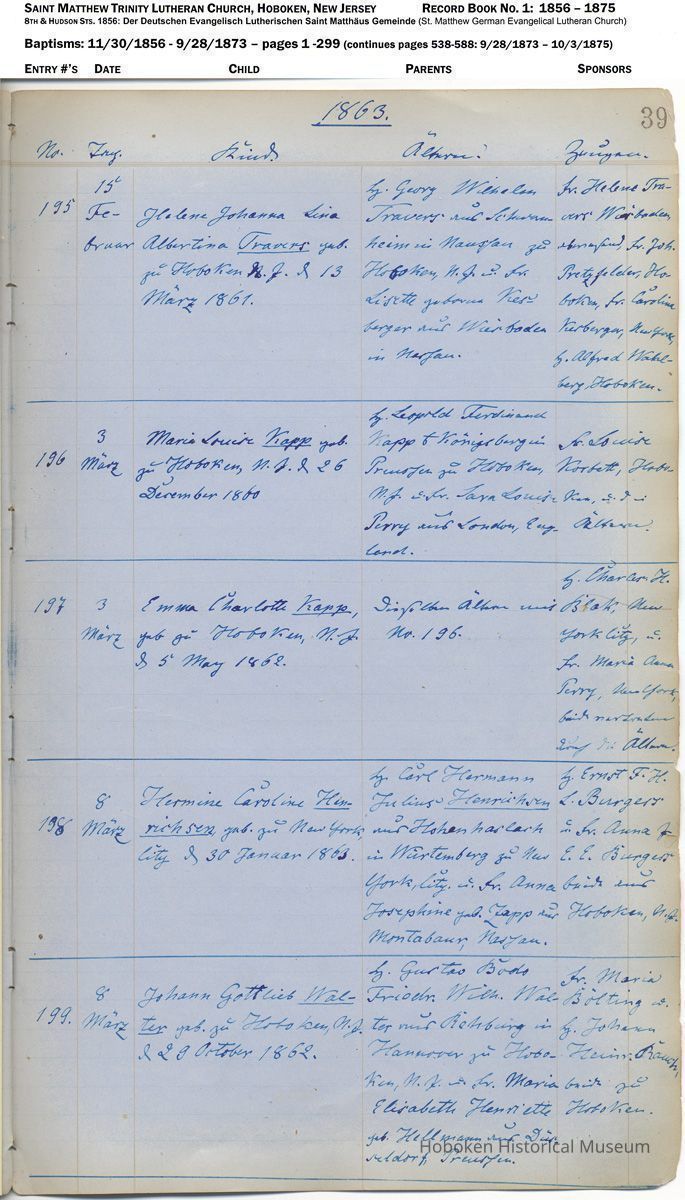 SAINT MATTHEW TRINITY LUTHERAN CHURCH, HOBOKEN, NEW JERSEY RECORD BOOK NO. 1: 1856 – 1875
8TH & HUDSON STS. 1856: Der Deutschen Evangelisch Lutherischen Saint Matthäus Gemeinde (St. Matthew German Evangelical Lutheran Church)
Baptisms: 11/30/1856 - 9/28/1873 – pages 1 -299 (continues pages 538-588: 9/28/1873 – 10/3/1875)
ENTRY #'S DATE CHILD PARENTS SPONSORS
1863.
39
No. Tag. Kind. Ältern. Zeugen.
195
15
Fe-
bruar
Helene Johanna Lina
Albertina Travers geb.
zu Hoboken N. J. d. 13
März 1861.
H. Georg Wilhelm
Travers aus Schwan-
heim in Nassau zu
Hoboken, N. J. u. Fr.
Lisette geborne Kes
berger aus Wiesbaden
in Nassau.
Fr. Helene Tra-
vers Wiesbaden
Fr. Joh.
Pretzfelder, Ho-
boken, Fr. Caroline
Kesberger, New York,
H. Alfred Wahl-
berg, Hoboken.
196
3
März
Maria Louise Kapp geb.
zu Hoboken, N. J. d. 26
December 1860
H. Leopold Ferdinand
Kapp Königsberg in
Preussen zu Hoboken,
N. J. u. Fr. Sara Louise
Perry aus London, Eng-
land.
Fr. Louise
Korbett, Hobo-
ken, u. die
Ältern.
197
3
März
Emma Charlotte Kapp,
geb zu Hoboken, N. J.
d. 5 May 1862.
Dieselben Ältern wie
No. 196.
H. Charles H.
Blak, New
York City, u.
Fr. Maria Anna
Perry, New York,
beide vertreten
durch die Ältern.
198
8
März
Hermine Caroline Hen-
richsen, geb. zu New York
City d. 30 Januar 1863.
H. Carl Hermann
Julius Henrichsen
aus Hohenhaslach
in Würtemberg zu New
York, City. u. Fr. Anna
Josephine geb. Zapp aus
Montabaur, Nassau.
H. Ernst F. H.
L. Burgess
u. Fr. Anna J.
E. E. Burgess
beide aus
Hoboken, N. J.
199.
8
März
Johann Gottlieb Wal-
ter geb. zu Hoboken, N. J.
d. 29 October 1862.
H. Gustav Bodo
Friedr. Wilh. Wal-
ter aus Rehburg in
Hannover zu Hobo-
ken, N. J. u. Fr. Maria
Elisabeth Henriette
geb. Hellmann aus Düs-
seldorf, Preussen.
Fr. Maria
Bölting u.
H. Johann
Heinr. Rausch,
beide zu
Hoboken.
Hoboken Historical Museum